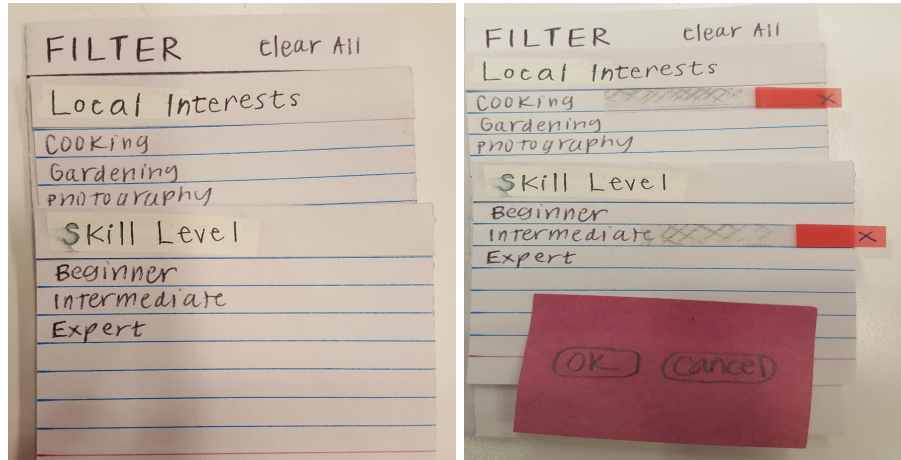 FILTER clear All
Local Interests
Cooking
Gardening
Photography
Skill Level
Beginner
Intermediate
Expert
FILTER clear All
Local Interests
Cooking X
Gardening
Photography
Skill Level
Beginner
Intermediate X
Expert
OK Cancel